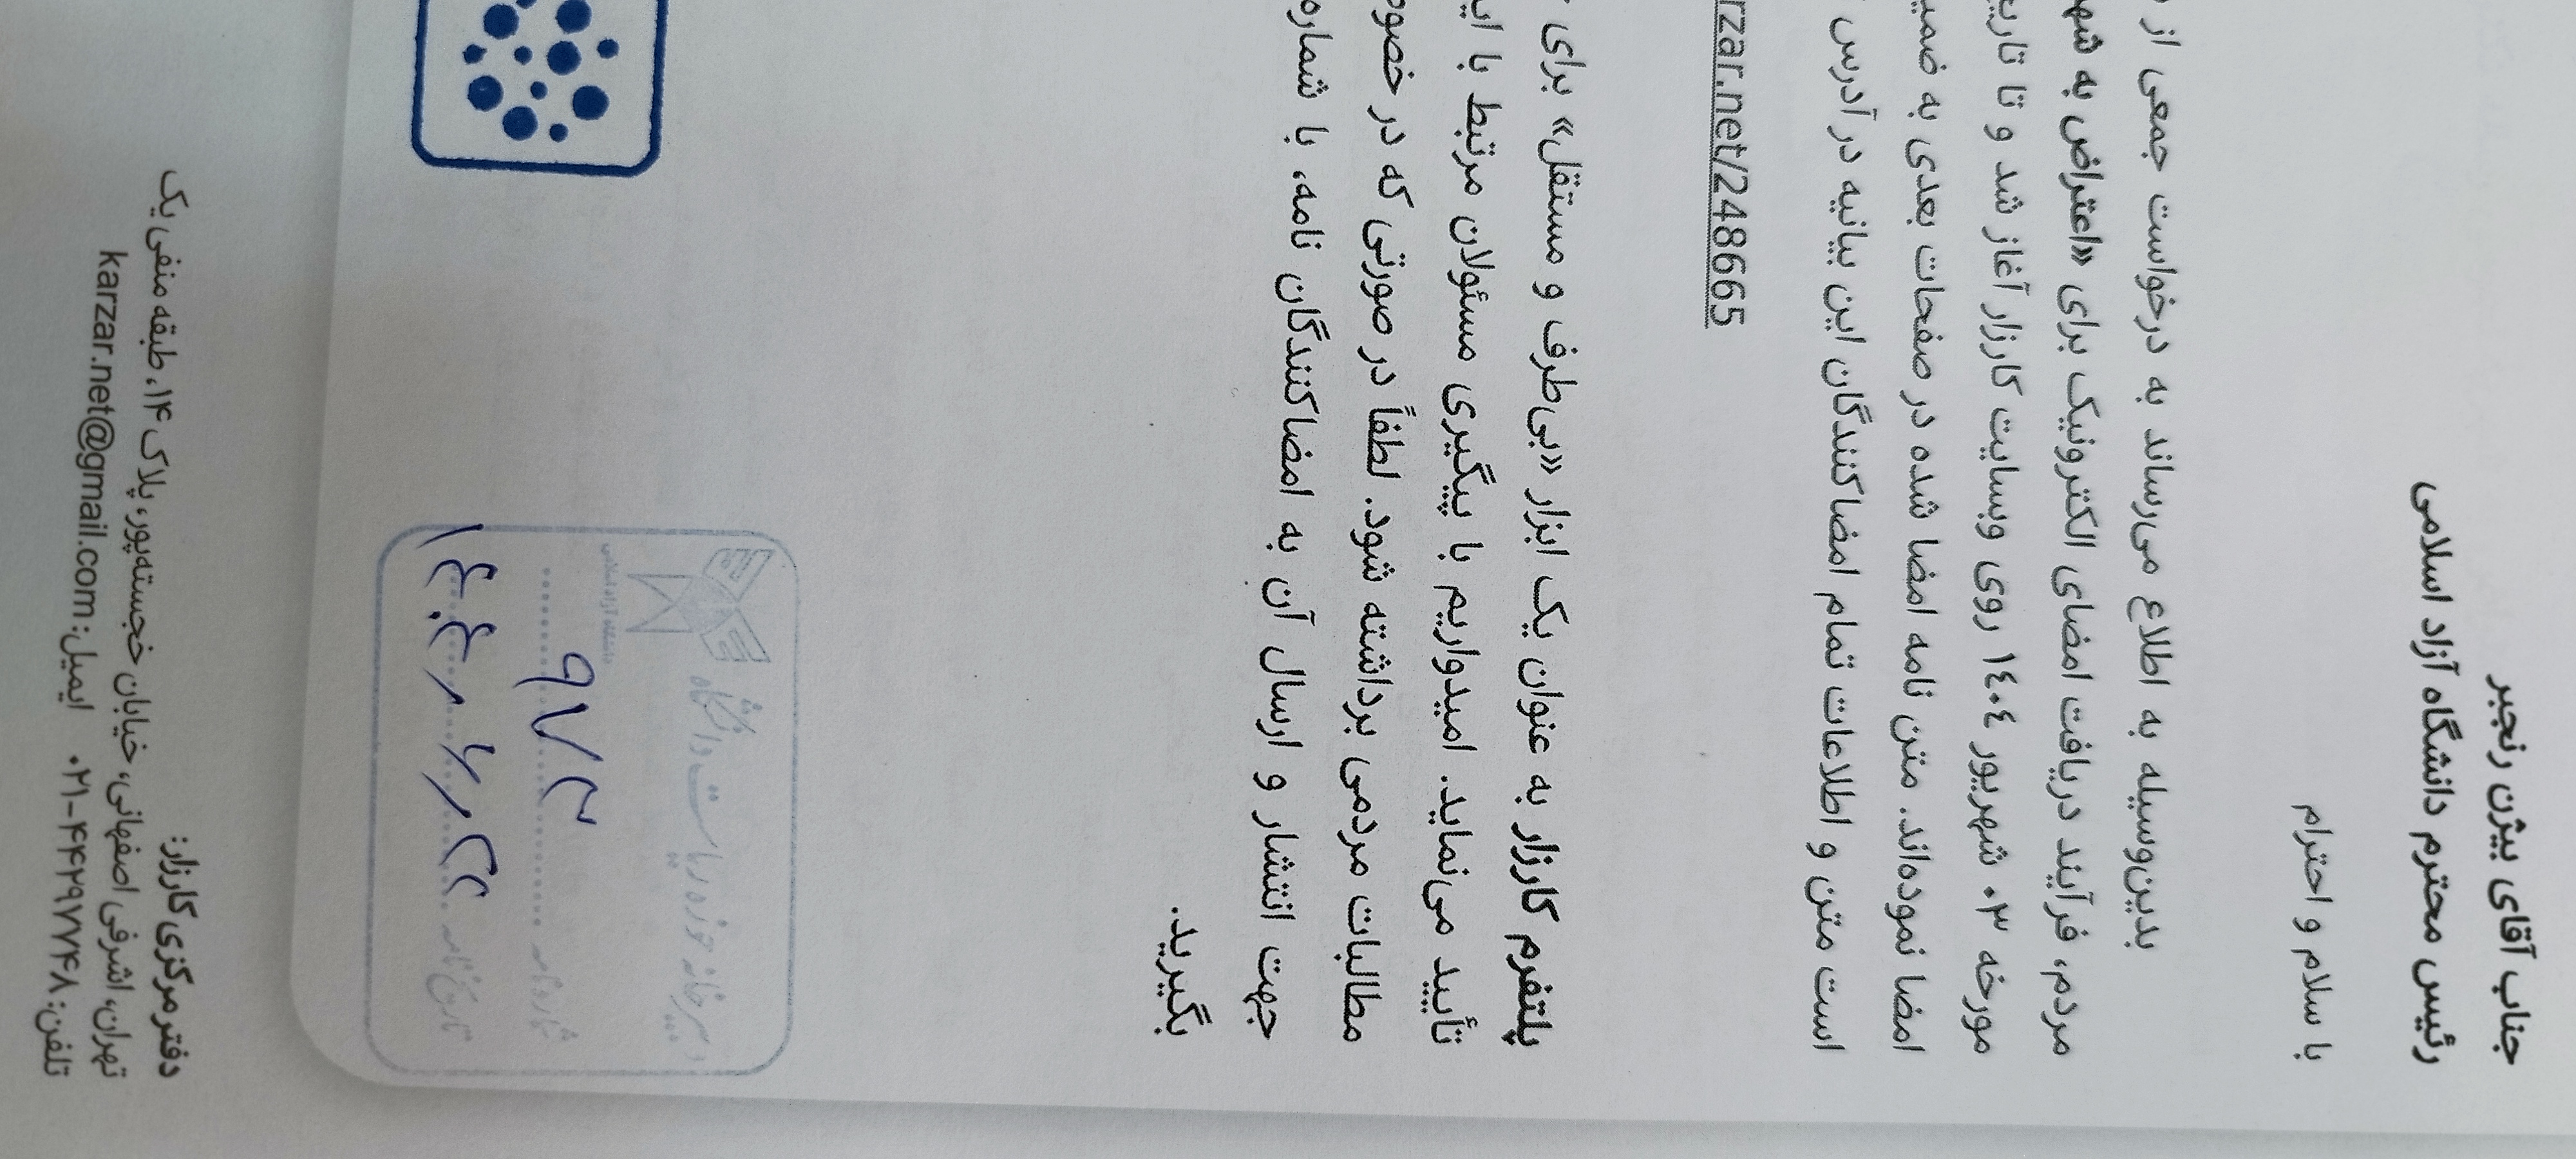 جناب آقای بیژن رنجبر
رئیس محترم دانشگاه آزاد اسلامی
با سلام و احترام
بدین‌وسیله به اطلاع می‌رساند به درخواست جمعی از
مردم، فرآیند دریافت امضای الکترونیک برای «اعتراض به شهر
مورخه ۰۳ شهریور ۱٤۰٤ روی وبسایت کارزار آغاز شد و تا تاری
امضا نموده‌اند. متن نامه امضا شده در صفحات بعدی به ضمی
است متن و اطلاعات تمام امضاکنندگان این بیانیه در آدرس
rzar.net/248665
پلتفرم کارزار به عنوان یک ابزار «بی‌طرف و مستقل» برای
تأیید می‌نماید. امیدواریم با پیگیری مسئولان مرتبط با ای
مطالبات مردمی برداشته شود. لطفاً در صورتی که در خصو
جهت انتشار و ارسال آن به امضاکنندگان نامه، با شماره
بگیرید.
دبیرخانه حوزه ریاست دانشگاه
دانشگاه آزاد اسلامی
شماره نامه
تاریخ نامه ۱٤۰٤
دفتر مرکزی کارزار:
تهران، اشرفی اصفهانی، خیابان خجسته‌پور، پلاک ۱۴، طبقه منفی یک
تلفن: ۴۴۲۹۷۷۴۸-۰۲۱ ایمیل: karzar.net@gmail.com